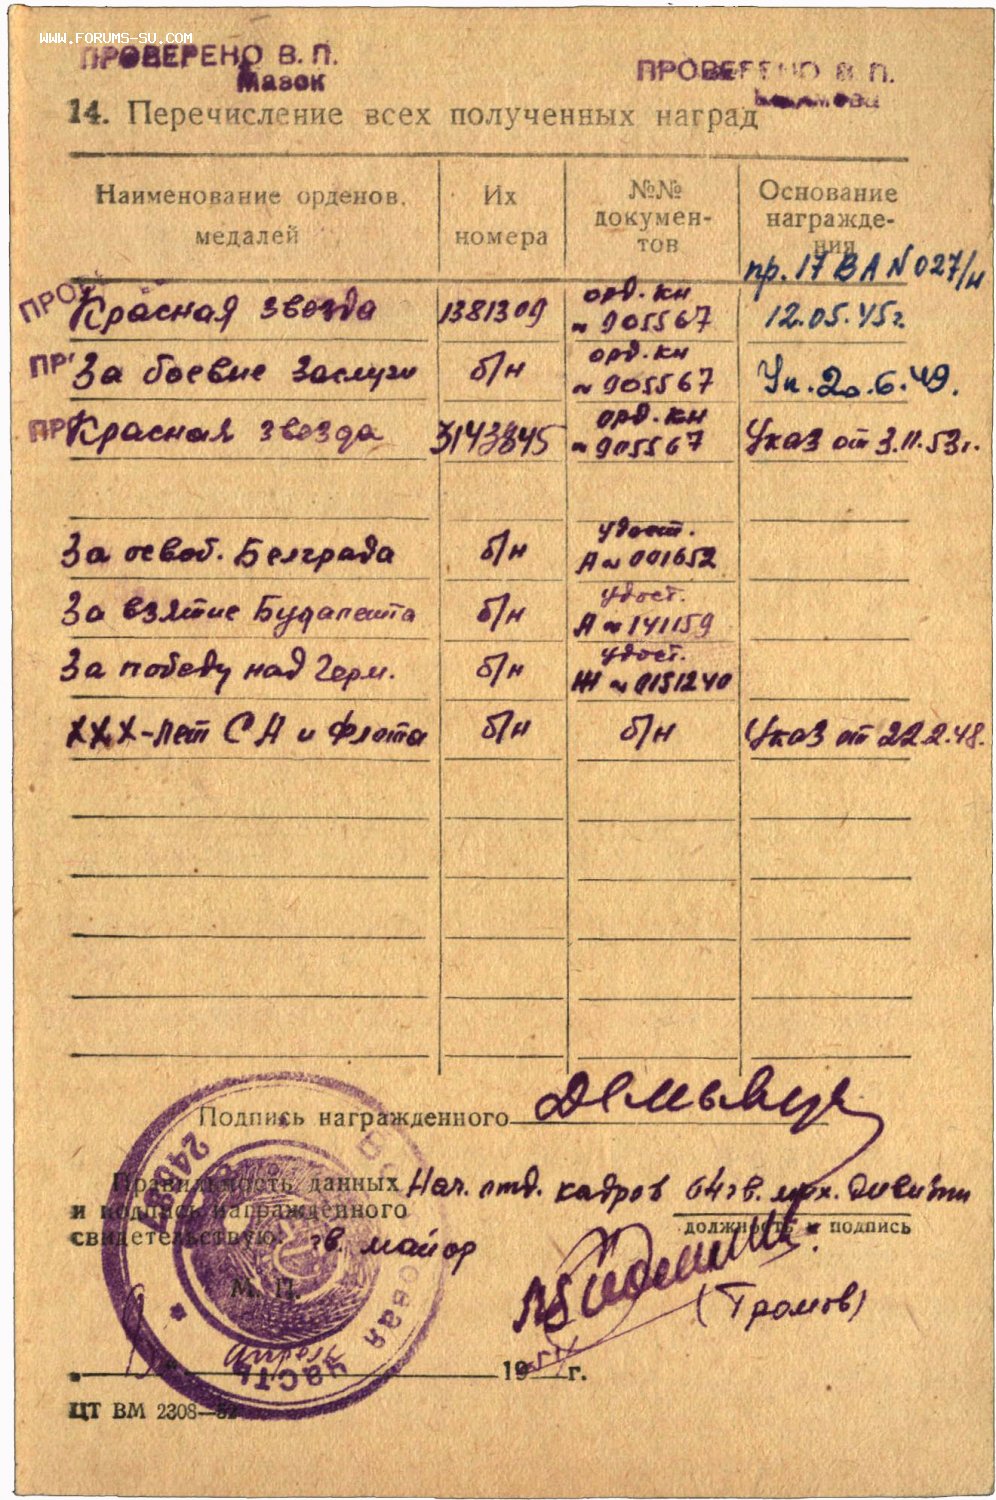 WWW.FORUMS-SU.COM
ПРОВЕРЕНО В. П.
Мазок
ПРОВЕРЕНО В. П.
14. Перечисление всех полученных наград
Наименование орденов, медалей
Их номера
№№ документов
Основание награждения
пр. 17 ВА N 027/н
Красная звезда 1381309 орд. кн ~ 905567 12.05.45г.
За боевые заслуги б/н орд. кн ~ 905567 Ук. 20.6.49.
Красная звезда 3143845 орд. кн ~ 905567 Указ от 3.11.53г.
За освоб. Белграда б/н удост. А ~ 001652
За взятие Будапешта б/н удост. А ~ 141159
За победу над Герм. б/н удост. Ж ~ 0151240
XXX-лет С А и Флота б/н б/н Указ от 22.2.48.
Подпись награжденного
Правильность данных Нач. отд. кадров 64 гв. мех. дивизии
и подпись награжденного
должность и подпись
свидетельствую: гв. майор
М. П.
(Громов)
апреля 19 г.
ЦТ ВМ 2308—52